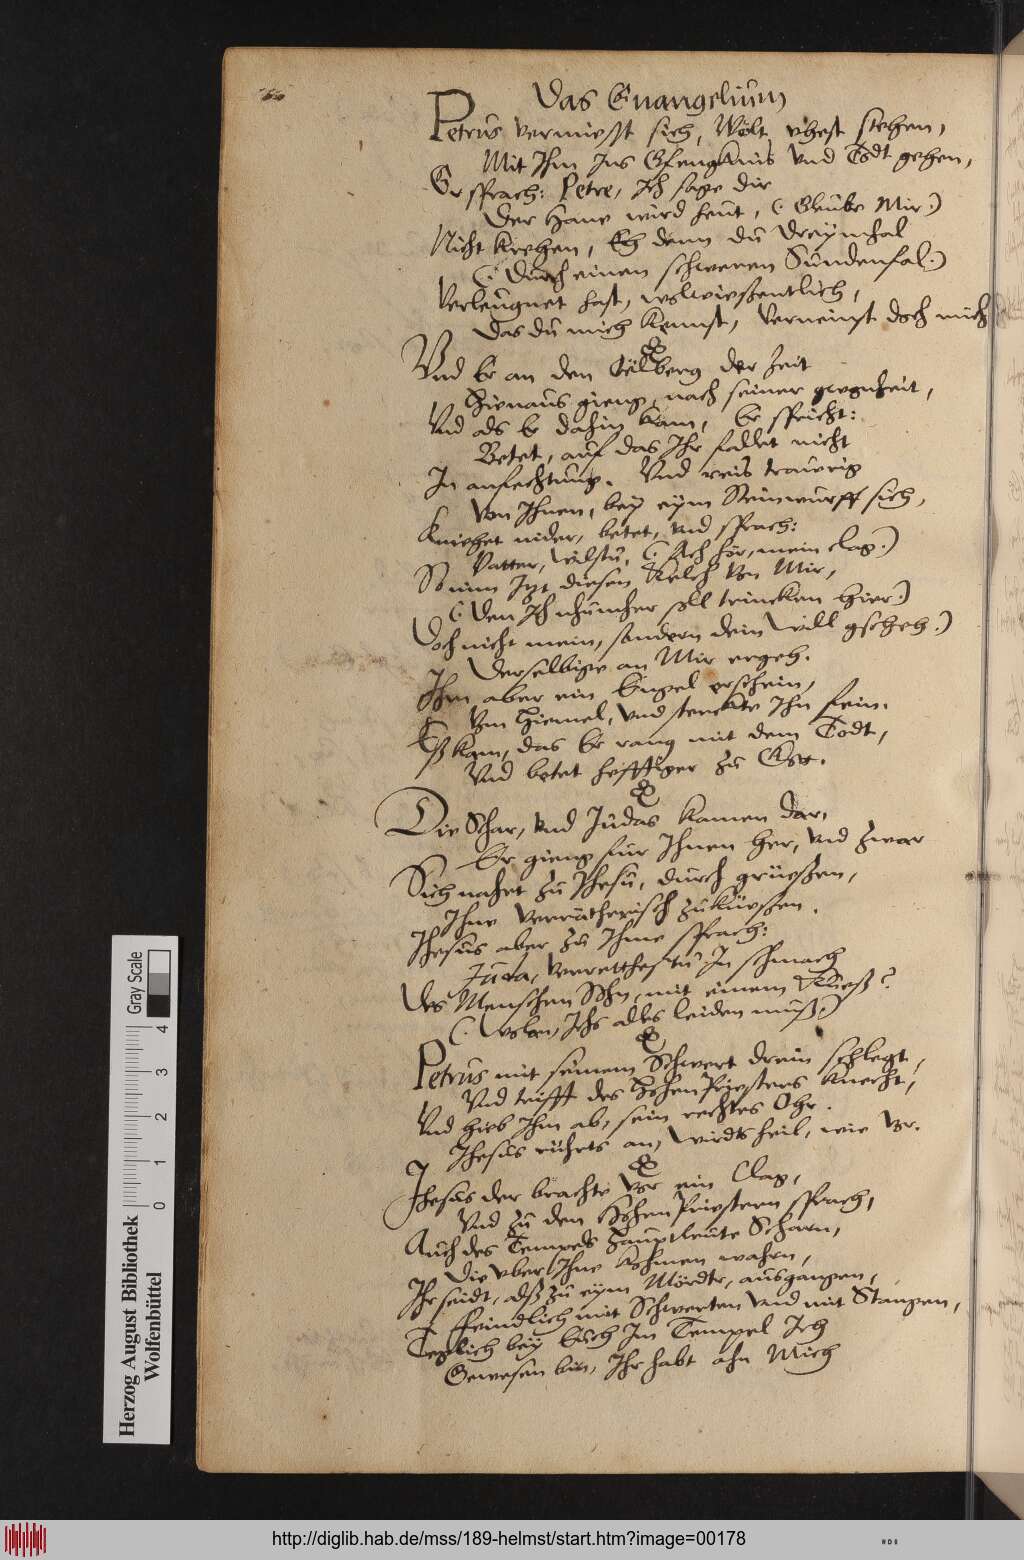 Das Euangelium
Petrus vermiesst sich, Wölt vhest stehen,
Mit Ihm Ins Gfengknus Vnd Todt gehen,
Er sprach: Petre, Ich sage dir
Der Hane wird heut, (: Gleube Mir :)
Nicht krehen, Eh denn du dreymhal
(: Durch einen schweren Sündenfal :)
Verleugnet hast, wolwießentlich,
Das du mich kennst, Verneinst doch mich
Vnd Er an den Oelberg der Zeit
Hienaus gieng, nach seiner gwonheit,
Vnd als Er dahin kam, Er spricht:
Betet, auf das Ihr fallet nicht
In anfechtung. Vnd reis trawrig
Von Ihnen, bey eym Steinwurff sich,
Kniehet nider, betet, vnd sprach:
Vatter, wilstu, (: Ach hör, mein clag :)
So nim Izt diesen Kelch Von Mir,
(: Den Ich nhüncher soll trincken hier :)
Doch nicht mein, sondern dein Will gscheh :)
Derselbige an Mir ergeh.
Ihm aber ein Engel erschein,
Vom Hiemel, vnd sterckte Ihn fein.
Eß kam, das Er rang mit dem Todt,
Vnd betet hefftiger zu Gott.
Die Schar, vnd Judas kamen dar,
Er gieng für Ihnen her, vnd zwar
Sich nahet zu Jhesu, durch grüeßen,
Ihne verrätherisch zuküeßen.
Jhesus aber zu Ihme sprach:
Juda, verretthestu In schmach
Des Menschen Sohn, mit einem Kueß?
(: Wolan, Ichs alles leiden muß :)
Petrus mit seinem Schwert drein schlegt,
Vnd trifft des Hohen Priesters Knecht,
Vnd hieb Ihm ab, sein rechtes Ohr.
Jhesus rührts an, Wirdts heil, wie Vor.
Jhesus der brachte Vor ein Clag,
Vnd zu den Hohen Priestern sprach,
Auch des Tempels Hauptleute Scharn,
Die vber Ihne kohmen wahrn,
Ihr seidt, alß zu eym Mördtr, ausgangen,
Feindlich mit Schwerten vnd mit Stangen,
Teglich bey Euch Im Tempel Ich
Gewesen bin, Ihr habt ahn Mich
Herzog August Bibliothek
Wolfenbüttel
Gray Scale
0 1 2 3 4
http://diglib.hab.de/mss/189-helmst/start.htm?image=00178